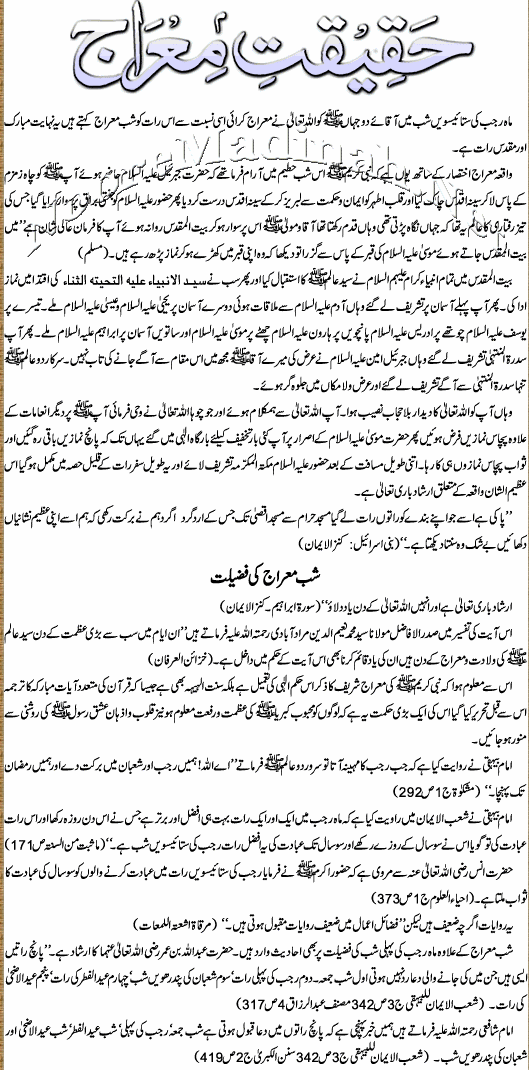 حَقِیقتِ مِعراج
ماہ رجب کی ستائیسویں شب میں آقائے دو جہاں ﷺ کو اللہ تعالیٰ نے معراج کرائی اسی نسبت سے اس رات کو شب معراج کہتے ہیں یہ نہایت مبارک
اور مقدس رات ہے۔
واقعہ معراج اختصار کے ساتھ یوں ہے کہ نبی کریم ﷺ اس شب حطیم میں آرام فرما تھے کہ حضرت جبرئیل علیہ السلام حاضر ہوئے آپ ﷺ کو چاہ زمزم
کے پاس لا کر سینہ اقدس چاک کیا اور قلب اطہر کو ایمان و حکمت سے لبریز کر کے سینہ اقدس درست کر دیا پھر حضور علیہ السلام کو جنتی براق پر سوار کرایا گیا جس کی
تیز رفتاری کا عالم یہ تھا کہ جہاں نگاہ پڑتی تھی وہاں قدم رکھتا تھا آقا و مولیٰ ﷺ اس پر سوار ہو کر بیت المقدس روانہ ہوئے آپ کا فرمان عالی شان ہے ’’میں
بیت المقدس جاتے ہوئے موسیٰ علیہ السلام کی قبر کے پاس سے گزرا تو دیکھا کہ وہ اپنی قبر میں کھڑے ہو کر نماز پڑھ رہے ہیں۔ (مسلم)
بیت المقدس میں تمام انبیاء کرام علیہم السلام نے سید عالم ﷺ کا استقبال کیا اور پھر سب نے سید الانبیاء علیہ التحیتہ الثناء کی اقتدا میں نماز
ادا کی۔ پھر آپ پہلے آسمان پر تشریف لے گئے وہاں آدم علیہ السلام سے ملاقات ہوئی دوسرے آسمان پر یحییٰ علیہ السلام و عیسیٰ علیہ السلام ملے۔ تیسرے پر
یوسف علیہ السلام چوتھے پر ادریس علیہ السلام پانچویں پر ہارون علیہ السلام چھٹے پر موسیٰ علیہ السلام اور ساتویں آسمان پر ابراہیم علیہ السلام ملے۔ پھر آپ
سدرۃ المنتہیٰ تشریف لے گئے وہاں جبرئیل امین علیہ السلام نے عرض کی میرے آقا ﷺ مجھ میں اس مقام سے آگے جانے کی تاب نہیں۔ سرکار دو عالم ﷺ
تنہا سدرۃ المنتہیٰ سے آگے تشریف لے گئے اور عرش و لامکاں میں جلوہ گر ہوئے۔
وہاں آپ کو اللہ تعالیٰ کا دیدار بلا حجاب نصیب ہوا۔ آپ اللہ تعالیٰ سے ہمکلام ہوئے اور جو چاہا اللہ تعالیٰ نے وحی فرمائی آپ ﷺ پر دیگر انعامات کے
علاوہ پچاس نمازیں فرض ہوئیں پھر حضرت موسیٰ علیہ السلام کے اصرار پر آپ کئی بار تخفیف کیلئے بارگاہ الٰہی میں گئے یہاں تک کہ پانچ نمازیں باقی رہ گئیں اور
ثواب پچاس نمازوں ہی کا رہا۔ اتنی طویل مسافت کے بعد حضور علیہ السلام مکۃ المکرمہ تشریف لائے اور یہ طویل سفر رات کے قلیل حصہ میں مکمل ہو گیا اس
عظیم الشان واقعہ کے متعلق ارشاد باری تعالیٰ ہے۔
’’پاکی ہے اسے جو اپنے بندے کو راتوں رات لے گیا مسجد حرام سے مسجد اقصیٰ تک جس کے اردگرد اگر دہم نے برکت رکھی کہ ہم اسے اپنی عظیم نشانیاں
دکھائیں بے شک وہ سنتا دیکھتا ہے۔‘‘ (بنی اسرائیل: کنزالایمان)
شب معراج کی فضیلت
ارشاد باری تعالیٰ ہے اور انہیں اللہ تعالیٰ کے دن یاد دلاؤ‘‘ (سورۃ ابراہیم۔ کنز الایمان)
اس آیت کی تفسیر میں صدر الافاضل مولانا سید محمد نعیم الدین مراد آبادی رحمتہ اللہ علیہ فرماتے ہیں ’’ان ایام میں سب سے بڑی عظمت کے دن سید عالم
ﷺ کی ولادت و معراج کے دن ہیں ان کی یاد قائم کرنا بھی اس آیت کے حکم میں داخل ہے۔ (خزائن العرفان)
اس سے معلوم ہوا کہ نبی کریم ﷺ کی معراج شریف کا ذکر اس حکم الٰہی کی تعمیل ہے بلکہ سنت الٰہیہ بھی ہے جیسا کہ قرآن کی متعدد آیات مبارکہ کا ترجمہ
اس سے قبل تحریر کیا گیا اس کی ایک بڑی حکمت یہ ہے کہ لوگوں کو محبوب کبریا ﷺ کی عظمت و رفعت معلوم ہو نیز قلوب و اذہان عشق رسول ﷺ کی روشنی سے
منور ہو جائیں۔
امام بیہقی نے روایت کیا ہے کہ جب رجب کا مہینہ آتا تو سرور دو عالم ﷺ فرماتے ’’اے اللہ! ہمیں رجب اور شعبان میں برکت دے اور ہمیں رمضان
تک پہنچا۔‘‘ (مشکوٰۃ ج 1 ص 292)
امام بیہقی نے شعب الایمان میں راویت کیا ہے کہ ماہ رجب میں ایک اور ایک رات بہت ہی افضل اور برتر ہے جس نے اس دن روزہ رکھا اور اس رات
عبادت کی تو گویا اس نے سو سال کے روزے رکھے اور سو سال تک عبادت کی یہ افضل رات رجب کی ستائیسویں شب ہے۔‘‘ (ماثبت من السنتہ ص 171)
حضرت انس رضی اللہ تعالیٰ عنہ سے مروی ہے کہ حضور اکرم ﷺ نے فرمایا رجب کی ستائیسویں رات میں عبادت کرنے والوں کو سو سال کی عبادت کا
ثواب ملتا ہے۔ (احیاء العلوم ج 1 ص 373)
یہ روایات اگرچہ ضعیف ہیں لیکن ’’فضائل اعمال میں ضعیف روایات مقبول ہوتی ہیں۔‘‘ (مرقاۃ اشعۃ اللمعات)
شب معراج کے علاوہ ماہ رجب کی پہلی شب کی فضیلت پر بھی احادیث وارد ہیں۔ حضرت عبداللہ بن عمر رضی اللہ تعالیٰ عنہما کا ارشاد ہے۔ ’’پانچ راتیں
ایسی ہیں جن میں کی جانے والی دعا رد نہیں ہوتی اول شب جمعہ۔ دوم رجب کی پہلی رات‘ سوم شعبان کی پندرھویں شب‘ چہارم عید الفطر کی رات‘ پنجم عید الاضحیٰ
کی رات۔ (شعب الایمان للبیہقی ج 3 ص 342 مصنف عبدالرزاق 4 ص 317)
امام شافعی رحمتہ اللہ علیہ فرماتے ہیں ہمیں خبر پہنچی ہے کہ پانچ راتوں میں دعا قبول ہوتی ہے شب جمعہ‘ رجب کی پہلی‘ شب عید الفطر‘ شب عید الاضحیٰ اور
شعبان کی پندرھویں شب۔ (شعب الایمان للبیہقی ج 3 ص 342 سنن الکبریٰ ج 2 ص 419)